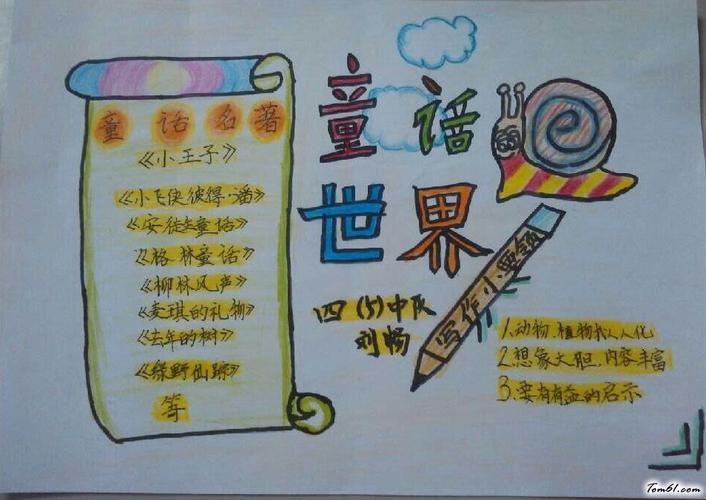 童话名著
《小王子》
《小飞侠彼得·潘》
《安徒生童话》
《格林童话》
《柳林风声》
《麦琪的礼物》
《去年的树》
《绿野仙踪》
等
童话
世界
四(5)中队
刘畅
写作小要领
1.动物、植物拟人化
2.想象大胆,内容丰富
3.要有有益的启示
Tom61.com